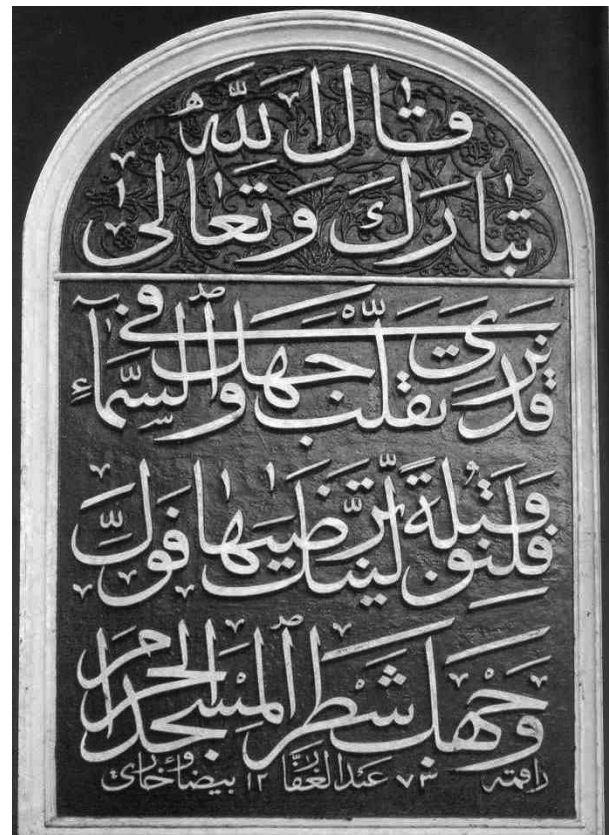 قال الله
تبارك وتعالى
قد نرى تقلب وجهك في السماء
فلنولينك قبلة ترضيها فول
وجهك شطر المسجد الحرام
راقمه عبد الغفار بيضاوي بخاري ١٢٧٣